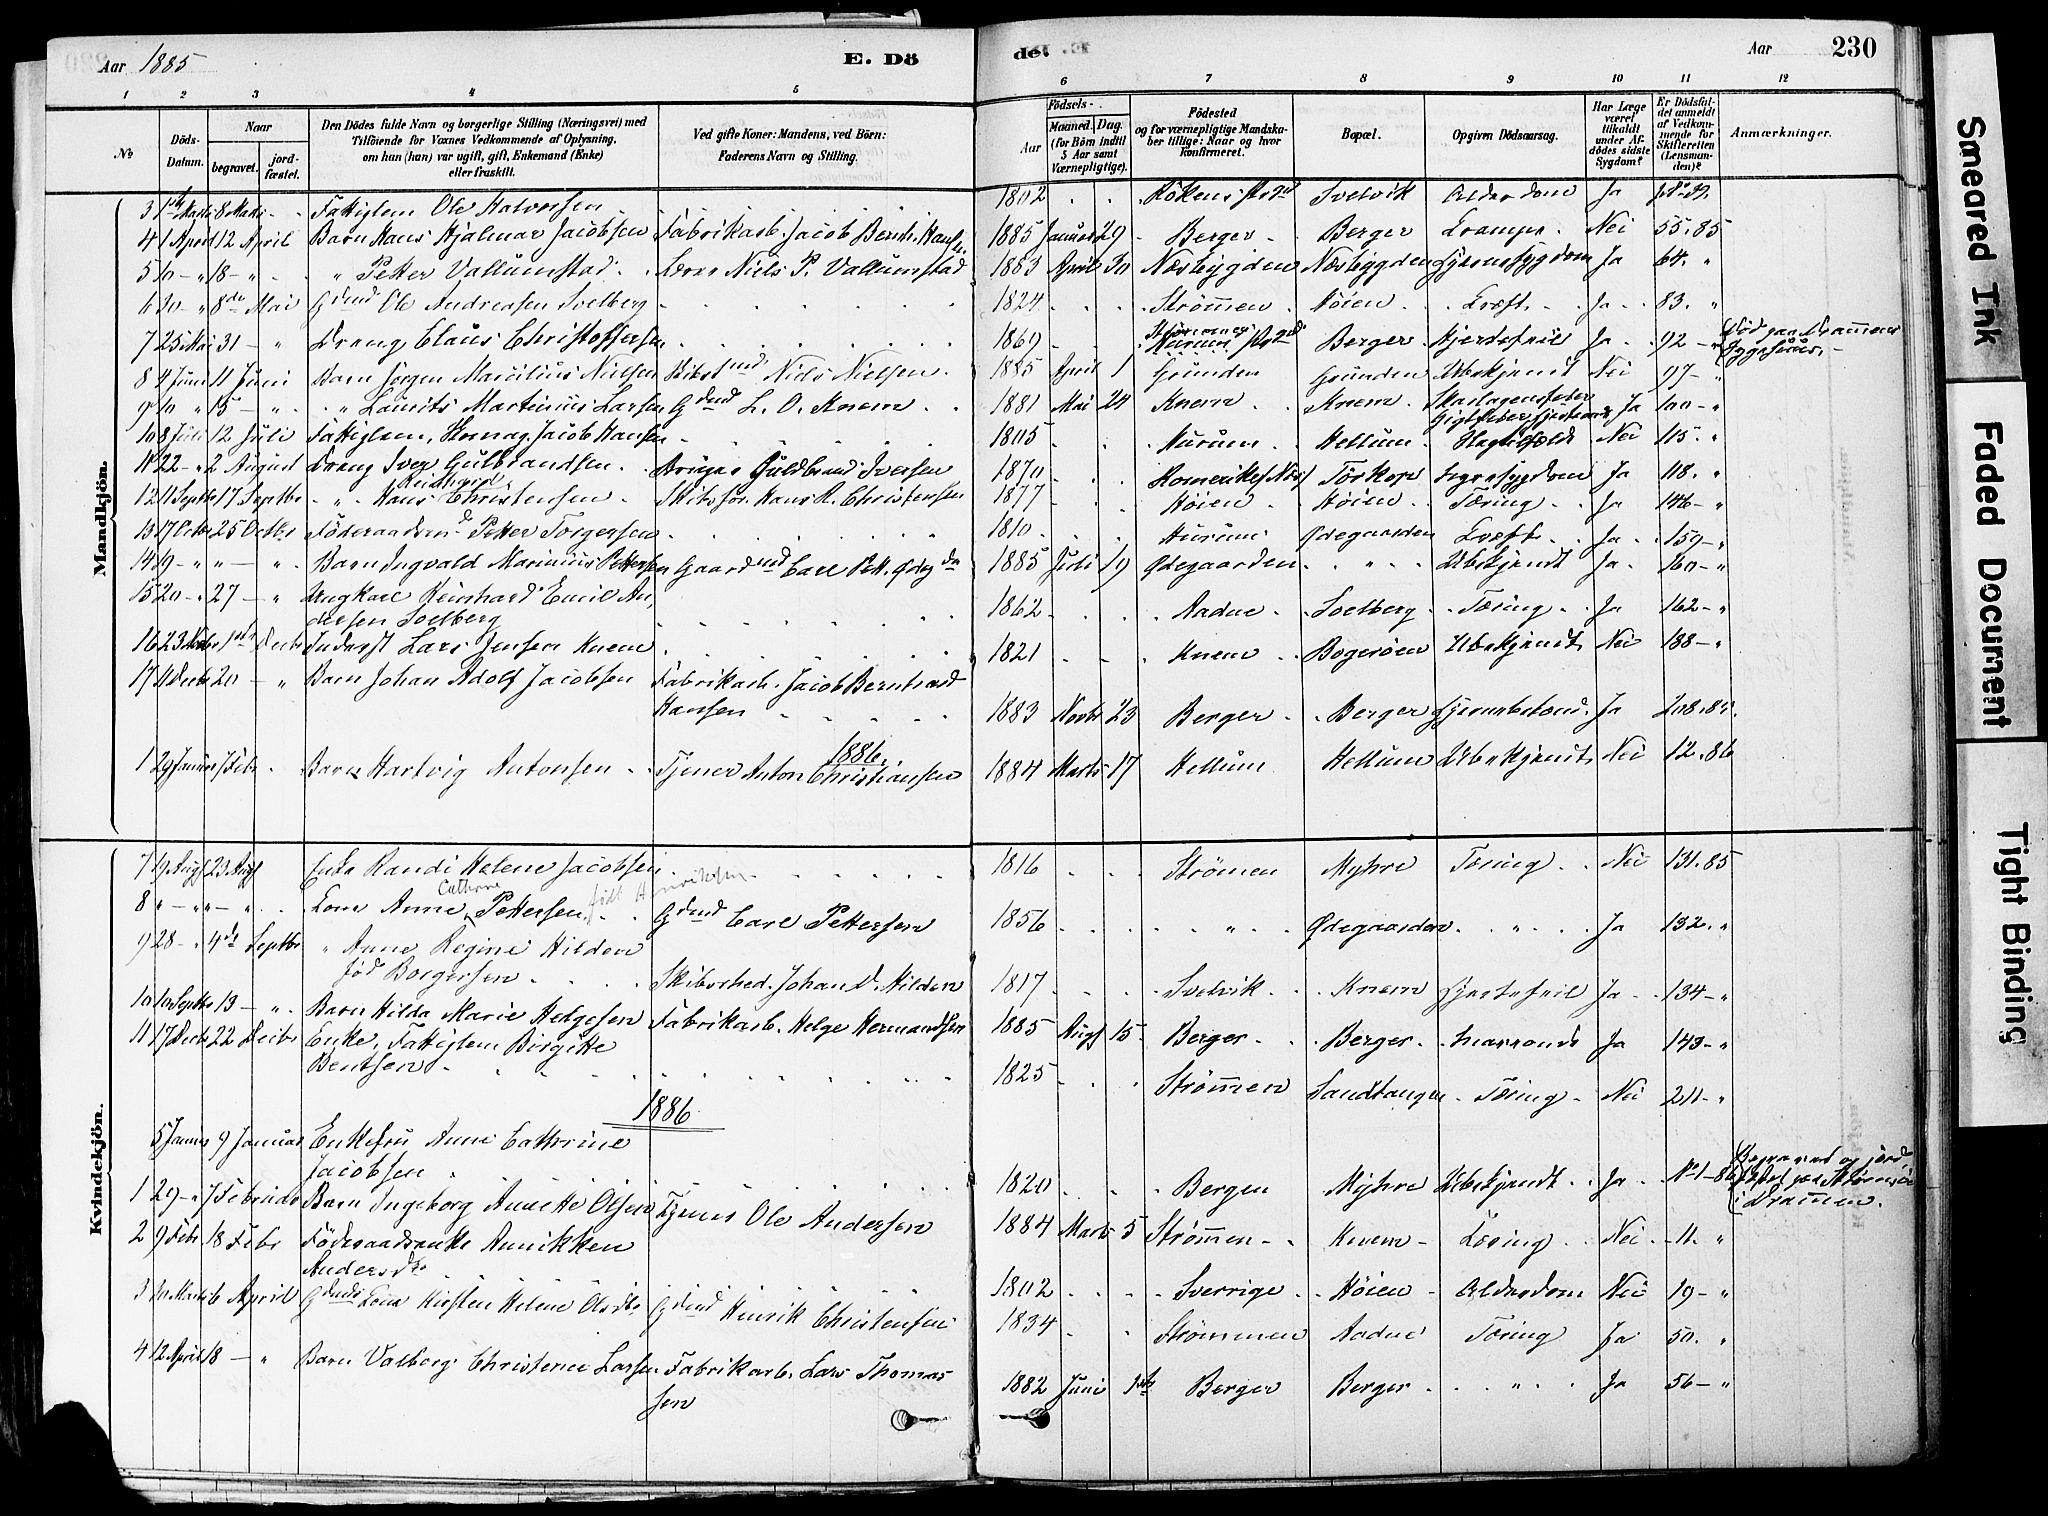 Aar 1885 E. Dö
de. Aar 230
1 2 3 4 5
6 7 8 9 10 11 12
No Döds-Datum. Naar begravet. jord-fæstet. Den Dödes fulde Navn og borgerlige Stilling (Næringsvei) med Tilföiende for Voxnes Vedkommende af Oplysning, om han (hun) var ugift, gift, Enkemand (Enke) eller fraskilt. Ved gifte Koner: Mandens, ved Börn: Faderens Navn og Stilling.
Födsels- Aar Maaned. Dag. (for Börn indtil 5 Aar samt Værnepligtige). Födested og for værnepligtige Mandskaber tillige: Naar og hvor konfirmeret. Bopæl. Opgiven Dödsaarsag. Har Læge været tilkaldt under Afdödes sidste Sygdom? Er Dödsfaldet anmeldt af Vedkommende for Skifteretten (Lensmanden)? Anmærkninger.
Mandkjön.
3 1ste Marts 8 Marts Fattiglem Ole Halvorsen 1802 Rökens Svelvik Alderdom Ja
4 1 April 12 April Barn Hans Hjalmar Jacobsen Fabrikarb. Jacob Bernh. Hansen 1885 Januar 29 Berger Berger Krampe Nei 55. 85
5 10 - " 18 - " " Petter Vallumstad Lærer Niels P. Vallumstad 1883 April 30 Næsbygden Næsbygden Hjernesygdom Ja 64. "
6 30 - " 8de Mai Gdmd Ole Andreasen Svelberg 1824 Strømmen Höien Kræft Ja 83. "
7 25 Mai 31 - " Dreng Claus Christoffersen 1869 Strømmen Hurum Berger Hjertefeil Ja 92 - " Död paa Drammens Sygehuus.
8 4 Juni 11 Juni Barn Jørgen Marcilius Nielsen Niels Nielsen 1885 April 1 Grunden Grunden Ubekjendt Nei 97 - "
9 10 " 15 - " " Laurits Martinius Larsen Gdmd L. O. Knem 1881 Mai 24 Knem Knem Skarlagensfeber Gigtfeber Ja 100 - "
10 8 Juli 12 Juli Fattiglem, Jacob Hansen 1805 Hurum Hellum Nei 115. "
11 22 - " 2 August Dreng Iver Gulbrandsen Guldbrand Iversen 1870 Romerike Nes Torkop Ja 118. "
12 11 Septbr 17 Septbr " Hans Christensen Skibsför. Hans R. Christensen 1877 Höien Höien Tæring Ja 146 - "
13 17 Octbr 25 Octbr Föderaadsmd Petter Torgersen 1810 Hurum Ødegaarden Kræft Ja 159 - "
14 19 - " " - " Barn Ingvald Marinius Pettersen Gaardmd Carl Pett. Ødegden 1885 Juli 19 Ødegaarden " Ubekjendt Ja 160 - "
15 20 - " 27 - " Ungkarl Reinhard Emil An
dersen Soelberg 1862 Aadne Soelberg Tæring Ja 162 - "
16 23 Novbr 1ste Decbr Inderst Lars Jensen Knem 1821 Knem Bogerøen Ubekjendt Nei 188 - "
17 11 Decbr 20 - " Barn Johan Adolf Jacobsen Fabrikarb. Jacob Berntsend
Hansen 1883 Novbr 23 Berger Berger Ja 208. 85.
1886.
1 29 Januar 7 Febr Barn Hartvig Antonsen Tjener Anton Christiansen 1884 Marts 17 Hellum Hellum Ubekjendt Nei 12. 86
Kvindekjön.
7 19 Augs 23 Augs Enke Randi Helene Jacobsen 1816 Strömen Myhre Tæring Nei 131. 85
8 " - " " - " Kone Anne Cathrine Pettersen, født Henriksen Gdmd Carl Pettersen 1856 " Ødegaarden " Ja 132. "
9 28 - " 4de Septbr " Anne Regine Hilden
föd Borgersen Skibsrhed. Johan D. Hilden 1817 Svelvik Knem Hjertefeil Ja 134 - "
10 10 Septbr 13 - " Barn Hilda Marie Helgesen Fabrikarb. Helge Hermandsen 1885 Augs 15 Berger Berger Ja 143 - "
11 17 Decbr 22 Decbr Enke, Fattiglem Birgitte
Bentsen 1825 Strømmen Sandtangen Tæring Nei 211 - "
1886
5 Januar 9 Januar Enkefru Anne Cathrine
Jacobsen 1820 Bergen Myhre Ubekjendt Ja No 1 - 86 Begravet og jord
fæstet paa Strømsø
i Drammen.
1 29 - " 7 Februar Barn Ingeborg Annette Olsen Tjener Ole Andersen 1884 Marts 5 Strømmen Knem Tæring Nei 11. "
2 9 Febr 18 Febr Föderaadsenke Annikken
Andersdtr. 1802 Sverrige Höien Alderdom Nei 19 - "
3 30 Marts 6 April Gdmds Kone Kirsten Helene Olsdtr Gdmd Henrik Christensen 1834 Strømmen Aadne Tæring Ja 50. "
4 12 April 18 - " Barn Valborg Christence Larsen Fabrikarb. Lars Thomas
sen 1882 Juni 1ste Berger Berger " Ja 56 - "
Smeared Ink
Faded Document
Tight Binding